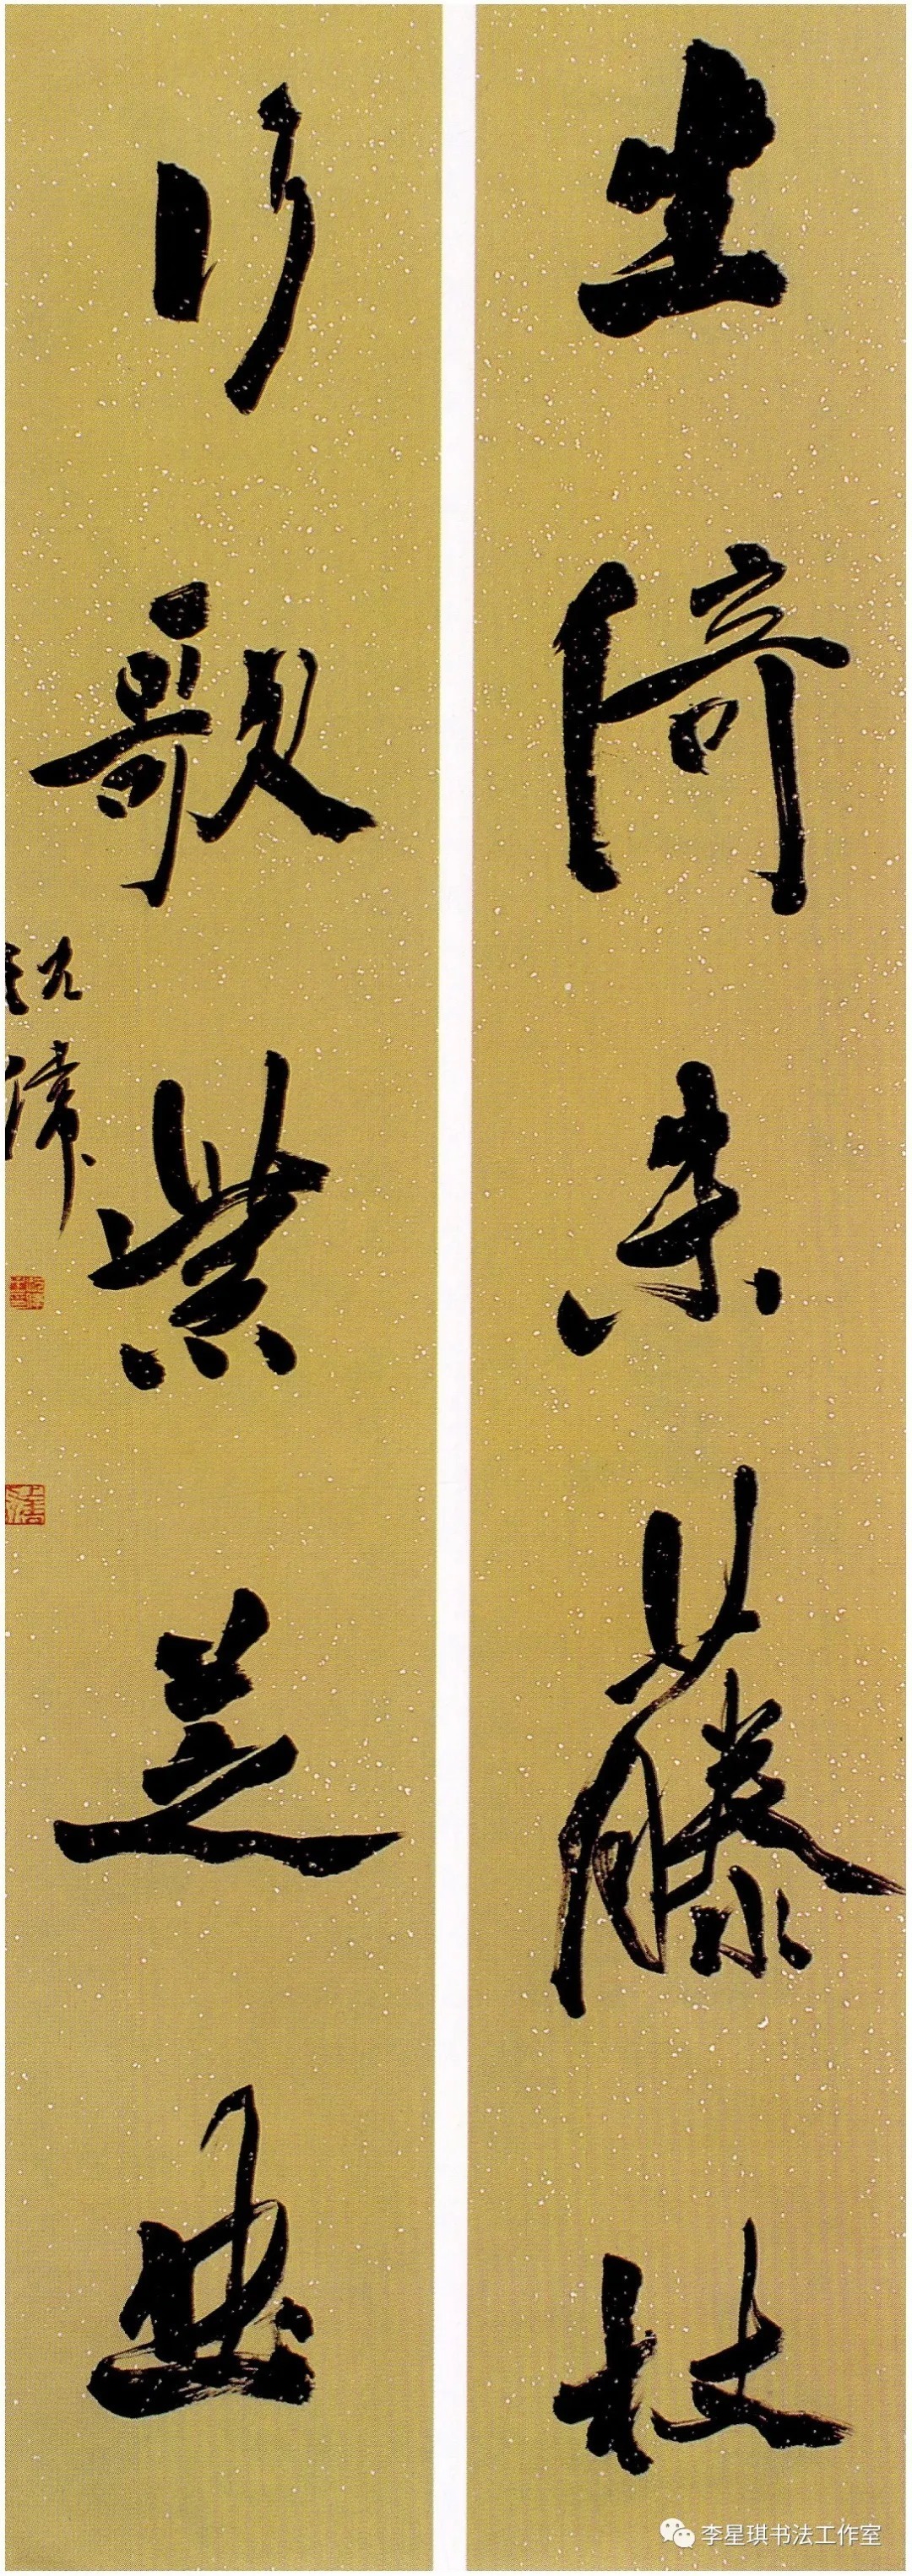 坐倚朱藤杖
行歌紫芝曲
李星琪书法工作室